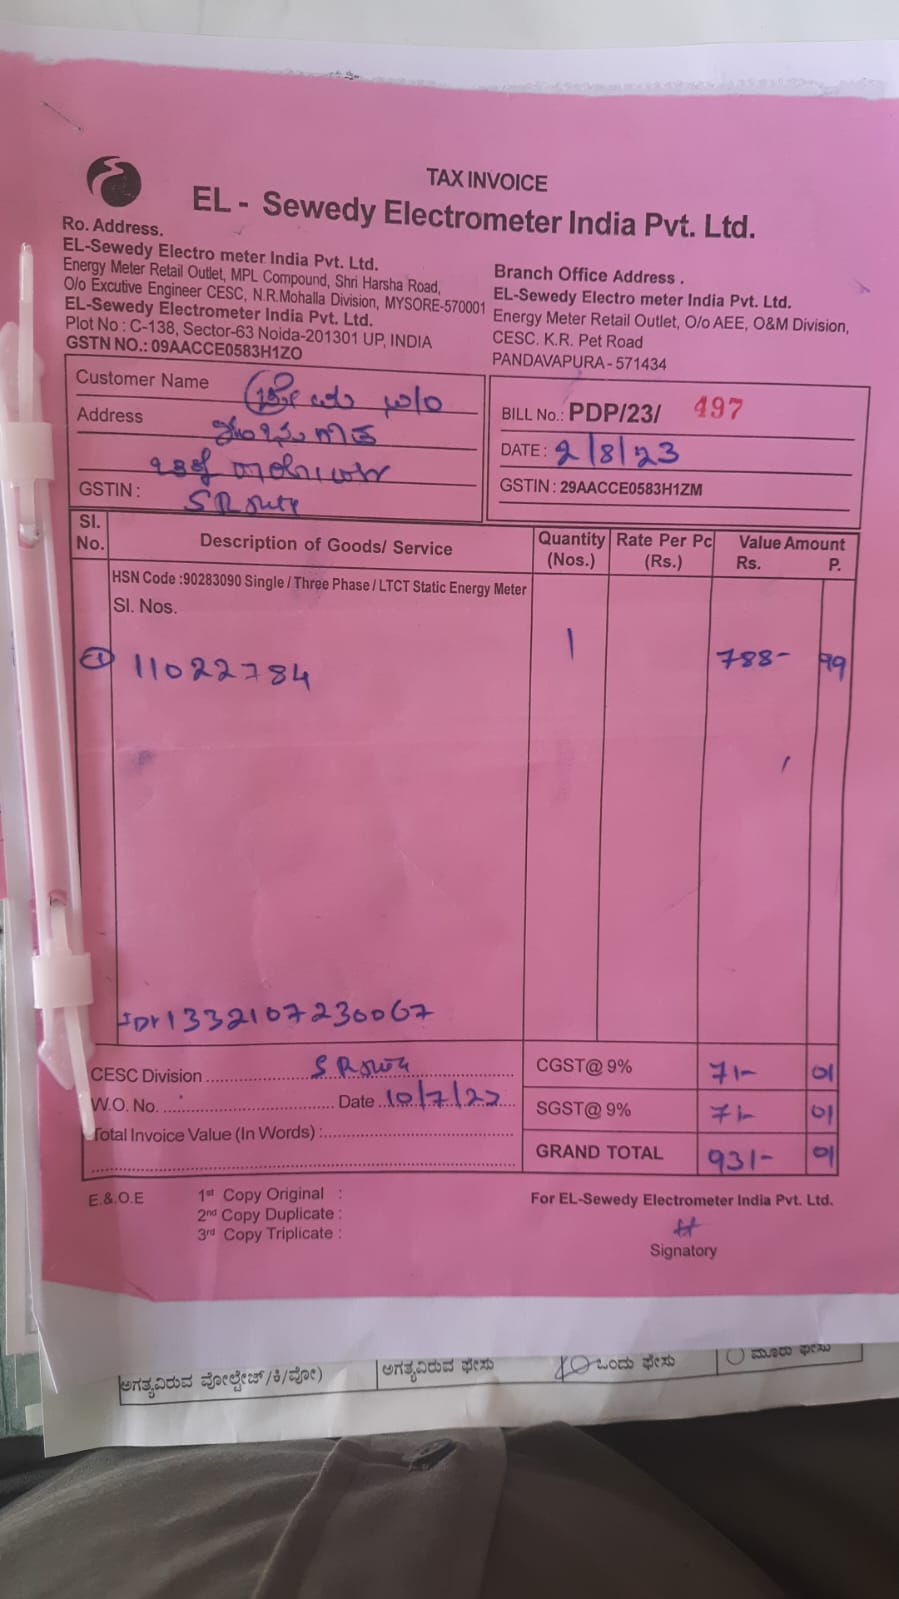 TAX INVOICE
EL - Sewedy Electrometer India Pvt. Ltd.
Ro. Address.
EL-Sewedy Electro meter India Pvt. Ltd.
Energy Meter Retail Outlet, MPL Compound, Shri Harsha Road,
O/o Excutive Engineer CESC, N.R.Mohalla Division, MYSORE-570001
EL-Sewedy Electrometer India Pvt. Ltd.
Plot No : C-138, Sector-63 Noida-201301 UP, INDIA
GSTN NO.: 09AACCE0583H1ZO
Branch Office Address .
EL-Sewedy Electro meter India Pvt. Ltd.
Energy Meter Retail Outlet, O/o AEE, O&M Division,
CESC. K.R. Pet Road
PANDAVAPURA - 571434
Customer Name
Address
GSTIN :
BILL No.: PDP/23/ 497
DATE : 2/8/23
GSTIN : 29AACCE0583H1ZM
Sl. No. Description of Goods/ Service Quantity (Nos.) Rate Per Pc (Rs.) Value Amount Rs. P.
HSN Code :90283090 Single / Three Phase / LTCT Static Energy Meter
Sl. Nos.
1 11022784 1 788- 99
1332107230067
CESC Division
W.O. No. Date 10/7/23
Total Invoice Value (In Words) :
CGST@ 9% 71- 01
SGST@ 9% 71- 01
GRAND TOTAL 931- 01
E.&.O.E
1st Copy Original :
2nd Copy Duplicate :
3rd Copy Triplicate :
For EL-Sewedy Electrometer India Pvt. Ltd.
Signatory
ಅಗತ್ಯವಿರುವ ವೋಲ್ಟೇಜ್/ಕಿ/ವೋ) ಅಗತ್ಯವಿರುವ ಫೇಸು ಒಂದು ಫೇಸು ಮೂರು ಫೇಸು